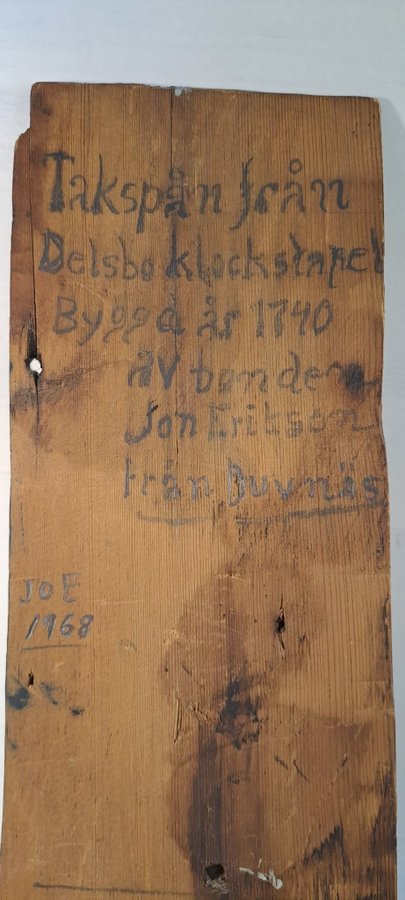 Takspån från
Delsbo klockstapel
Byggd år 1740
av bonden
Jon Erikson
från Duvnäs
JOE
1968